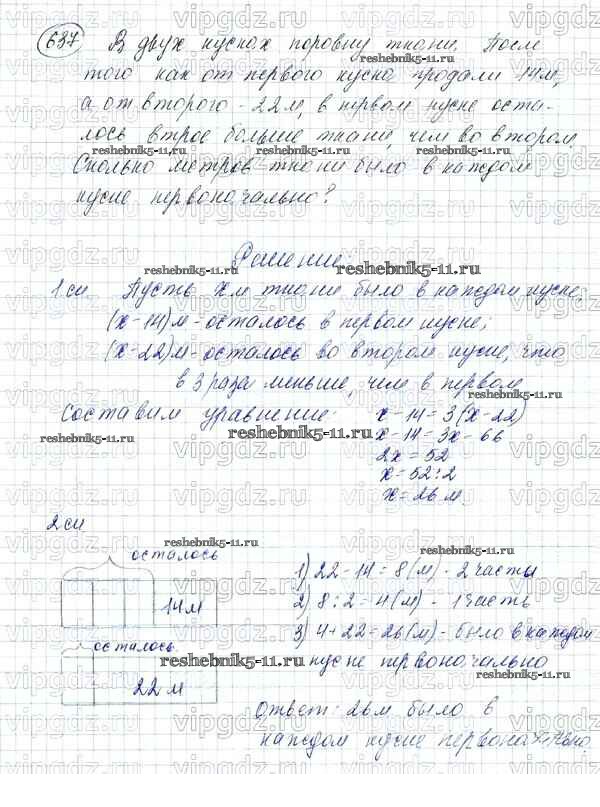 637 В двух кусках поровну ткани. После
того как от первого куска продали 14 м,
а от второго - 22 м, в первом куске оста-
лось втрое больше ткани, чем во втором.
Сколько метров ткани было в каждом
куске первоначально?
Решение.
1 сп. Пусть x м ткани было в каждом куске,
(x-14) м - осталось в первом куске;
(x-22) м - осталось во втором куске, что
в 3 раза меньше, чем в первом.
Составим уравнение: x-14=3(x-22)
x-14=3x-66
2x=52
x=52:2
x=26 м.
2 сп
осталось
14 м
осталось
22 м
1) 22-14=8 (м) - 2 части
2) 8:2=4 (м) - 1 часть
3) 4+22=26 (м) - было в каждом
куске первоначально
Ответ: 26 м было в
каждом куске первоначально.
vipgdz.ru
reshebnik5-11.ru